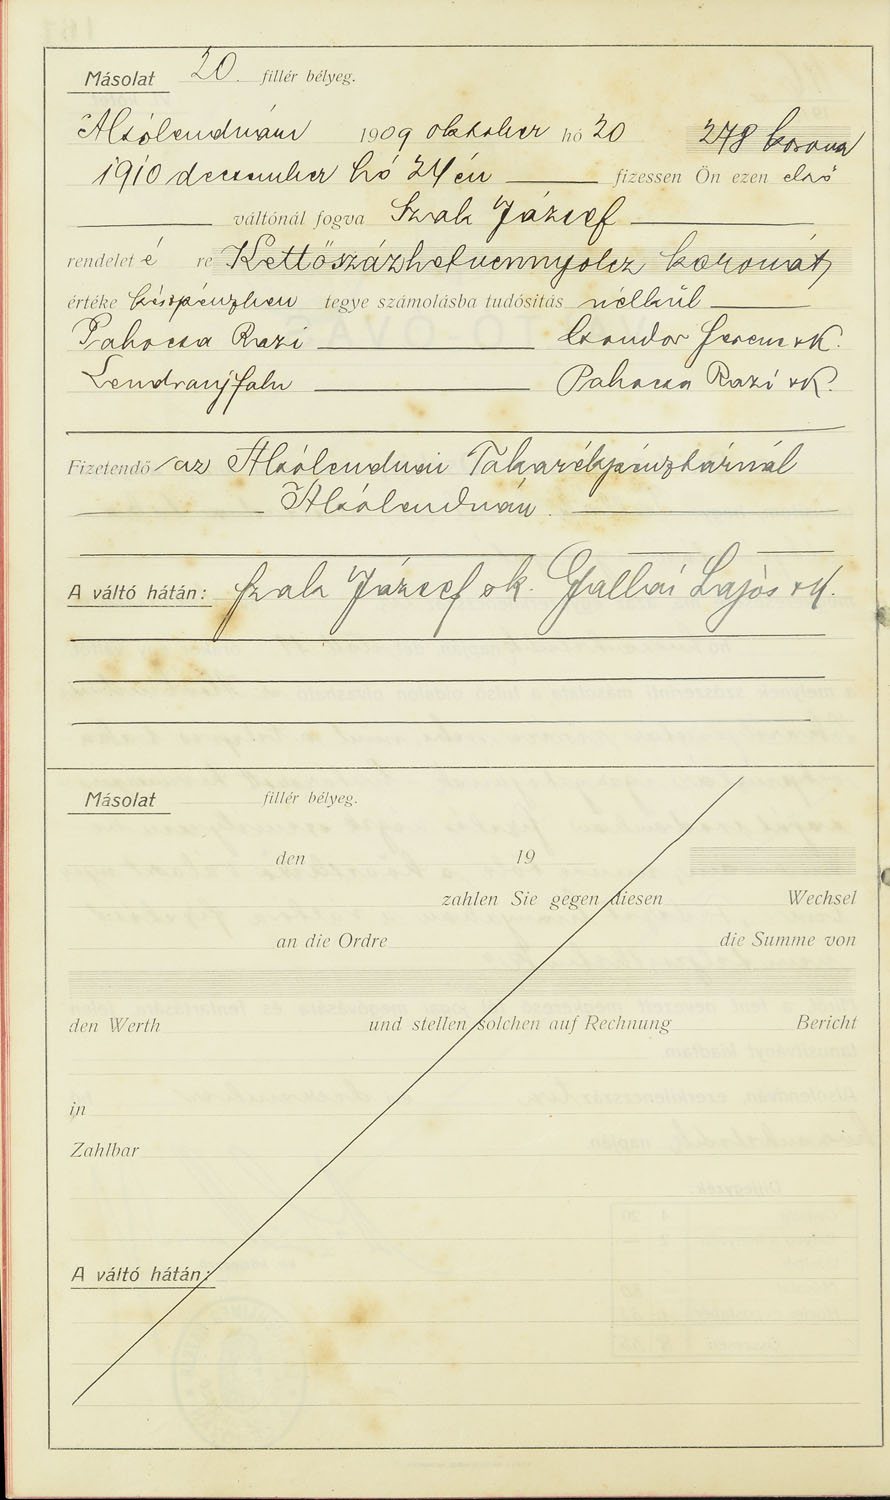 Másolat 20 fillér bélyeg.
Alsólendván 1909 oktober hó 20 278 korona
1910 deczember hó 24én fizessen Ön ezen első
váltónál fogva Szak József
rendelet é re Kettőszázhetvennyolcz koronát,
értéke készpénzben tegye számolásba tudósítás nélkül
Pahocsa Razi Csondor Ferencz sk.
Lendvaujfalu Pahocsa Razi sk.
Fizetendő az Alsólendvai Takarékpénztárnál
Alsólendván.
A váltó hátán: Szak József sk. Lajos sk.
Másolat fillér bélyeg.
den 19
zahlen Sie gegen diesen Wechsel
an die Ordre die Summe von
den Werth und stellen solchen auf Rechnung Bericht
in
Zahlbar
A váltó hátán: